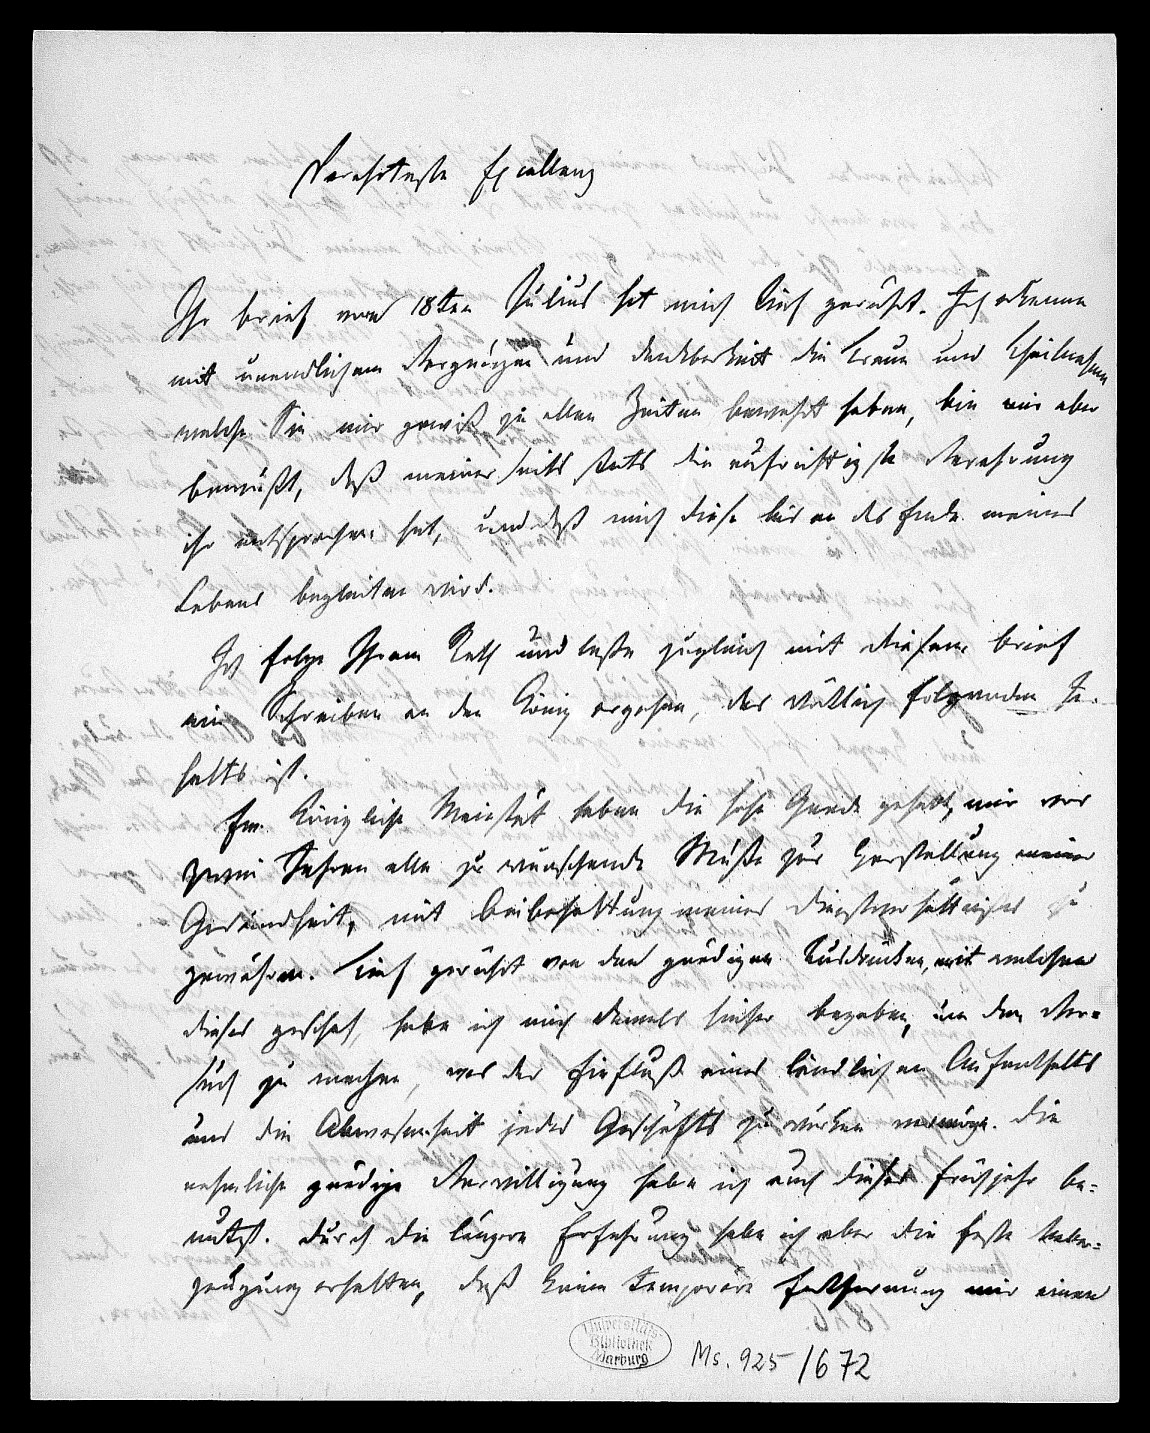 Verehrteste Excellenz
Ihr brief vom 18ten Julius hat mich tief gerührt. Ich erkenne
mit unendlichem Vergnügen und dankbarkeit die treue und theilnahme
welche Sie mir gewiß zu allen Zeiten bewahrt haben, bin mir aber
bewußt, daß meiner seits stets die aufrichtigste Verehrung
ihr entsprochen hat, und daß mich diese bis an das Ende meines
Lebens begleiten wird.
Ich folge Ihrem Rath und lasse zugleich mit diesem brief
ein Schreiben an den König ergehen, das wörtlich folgenden In-
halts ist.
Ew. Königliche Maiestät haben die hohe Gnade gehabt, mir vor
zwei Jahren alle zu wünschende Muße zur Herstellung meiner
Gesundheit, mit beibehaltung meines dienstverhältnisses zu
gewähren. tief gerührt von den gnädigen Ausdrücken, mit welchen
dieses geschah, habe ich mich damals hieher begeben, um den Ver=
such zu machen, was der Einfluß eines ländlichen Aufenthalts
und die Abwesenheit jedes Geschäfts zu wirken vermöge. die
nehmliche gnädige Verwilligung habe ich auch dieses frühjahr be=
nutzt. durch die längere Erfahrung habe ich aber die feste Ueber=
zeugung erhalten, daß keine temporäre Entfernung mir einen
Universitäts
Bibliothek
Marburg
Ms. 925/672